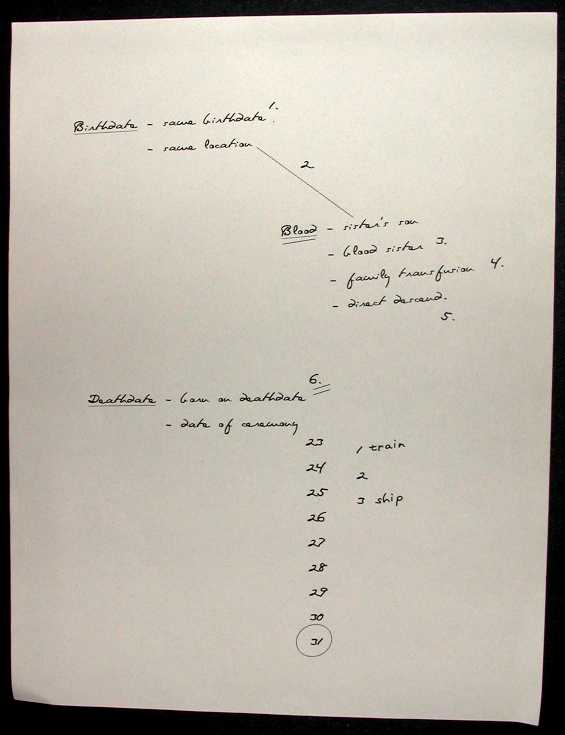 1.
Birthdate - same birthdate.
- same location
2
Blood - sister's son
- blood sister 3.
- family transfusion 4.
- direct descend.
5.
6.
Deathdate - born on deathdate
- date of ceremony
23
1 train
24
2
25
3 ship
26
27
28
29
30
31